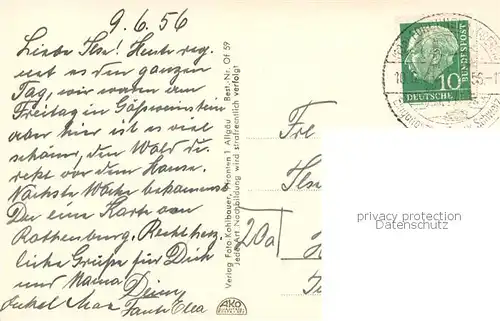 9.6.56
Liebe Ilse! Heute reg-
net es den ganzen
Tag, wir waren am
Freitag in Gößweinstein
aber hier ist es viel
schöner, den Wald di-
rekt vor dem Hause.
Nächste Woche bekommst
Du eine Karte von
Rothenburg. Recht herz-
liche Grüße für Dich
und Mama Deine
Onkel Max Tante Elea
Verlag Foto-Kohlbauer, Pfronten 1 Allgäu Best.-Nr. Of 59
Jeder Art Nachbildung wird strafrechtlich verfolgt
AKO
Fre
Ilse
20a
10
DEUTSCHE
BUNDESPOST
privacy protection
Datenschutz